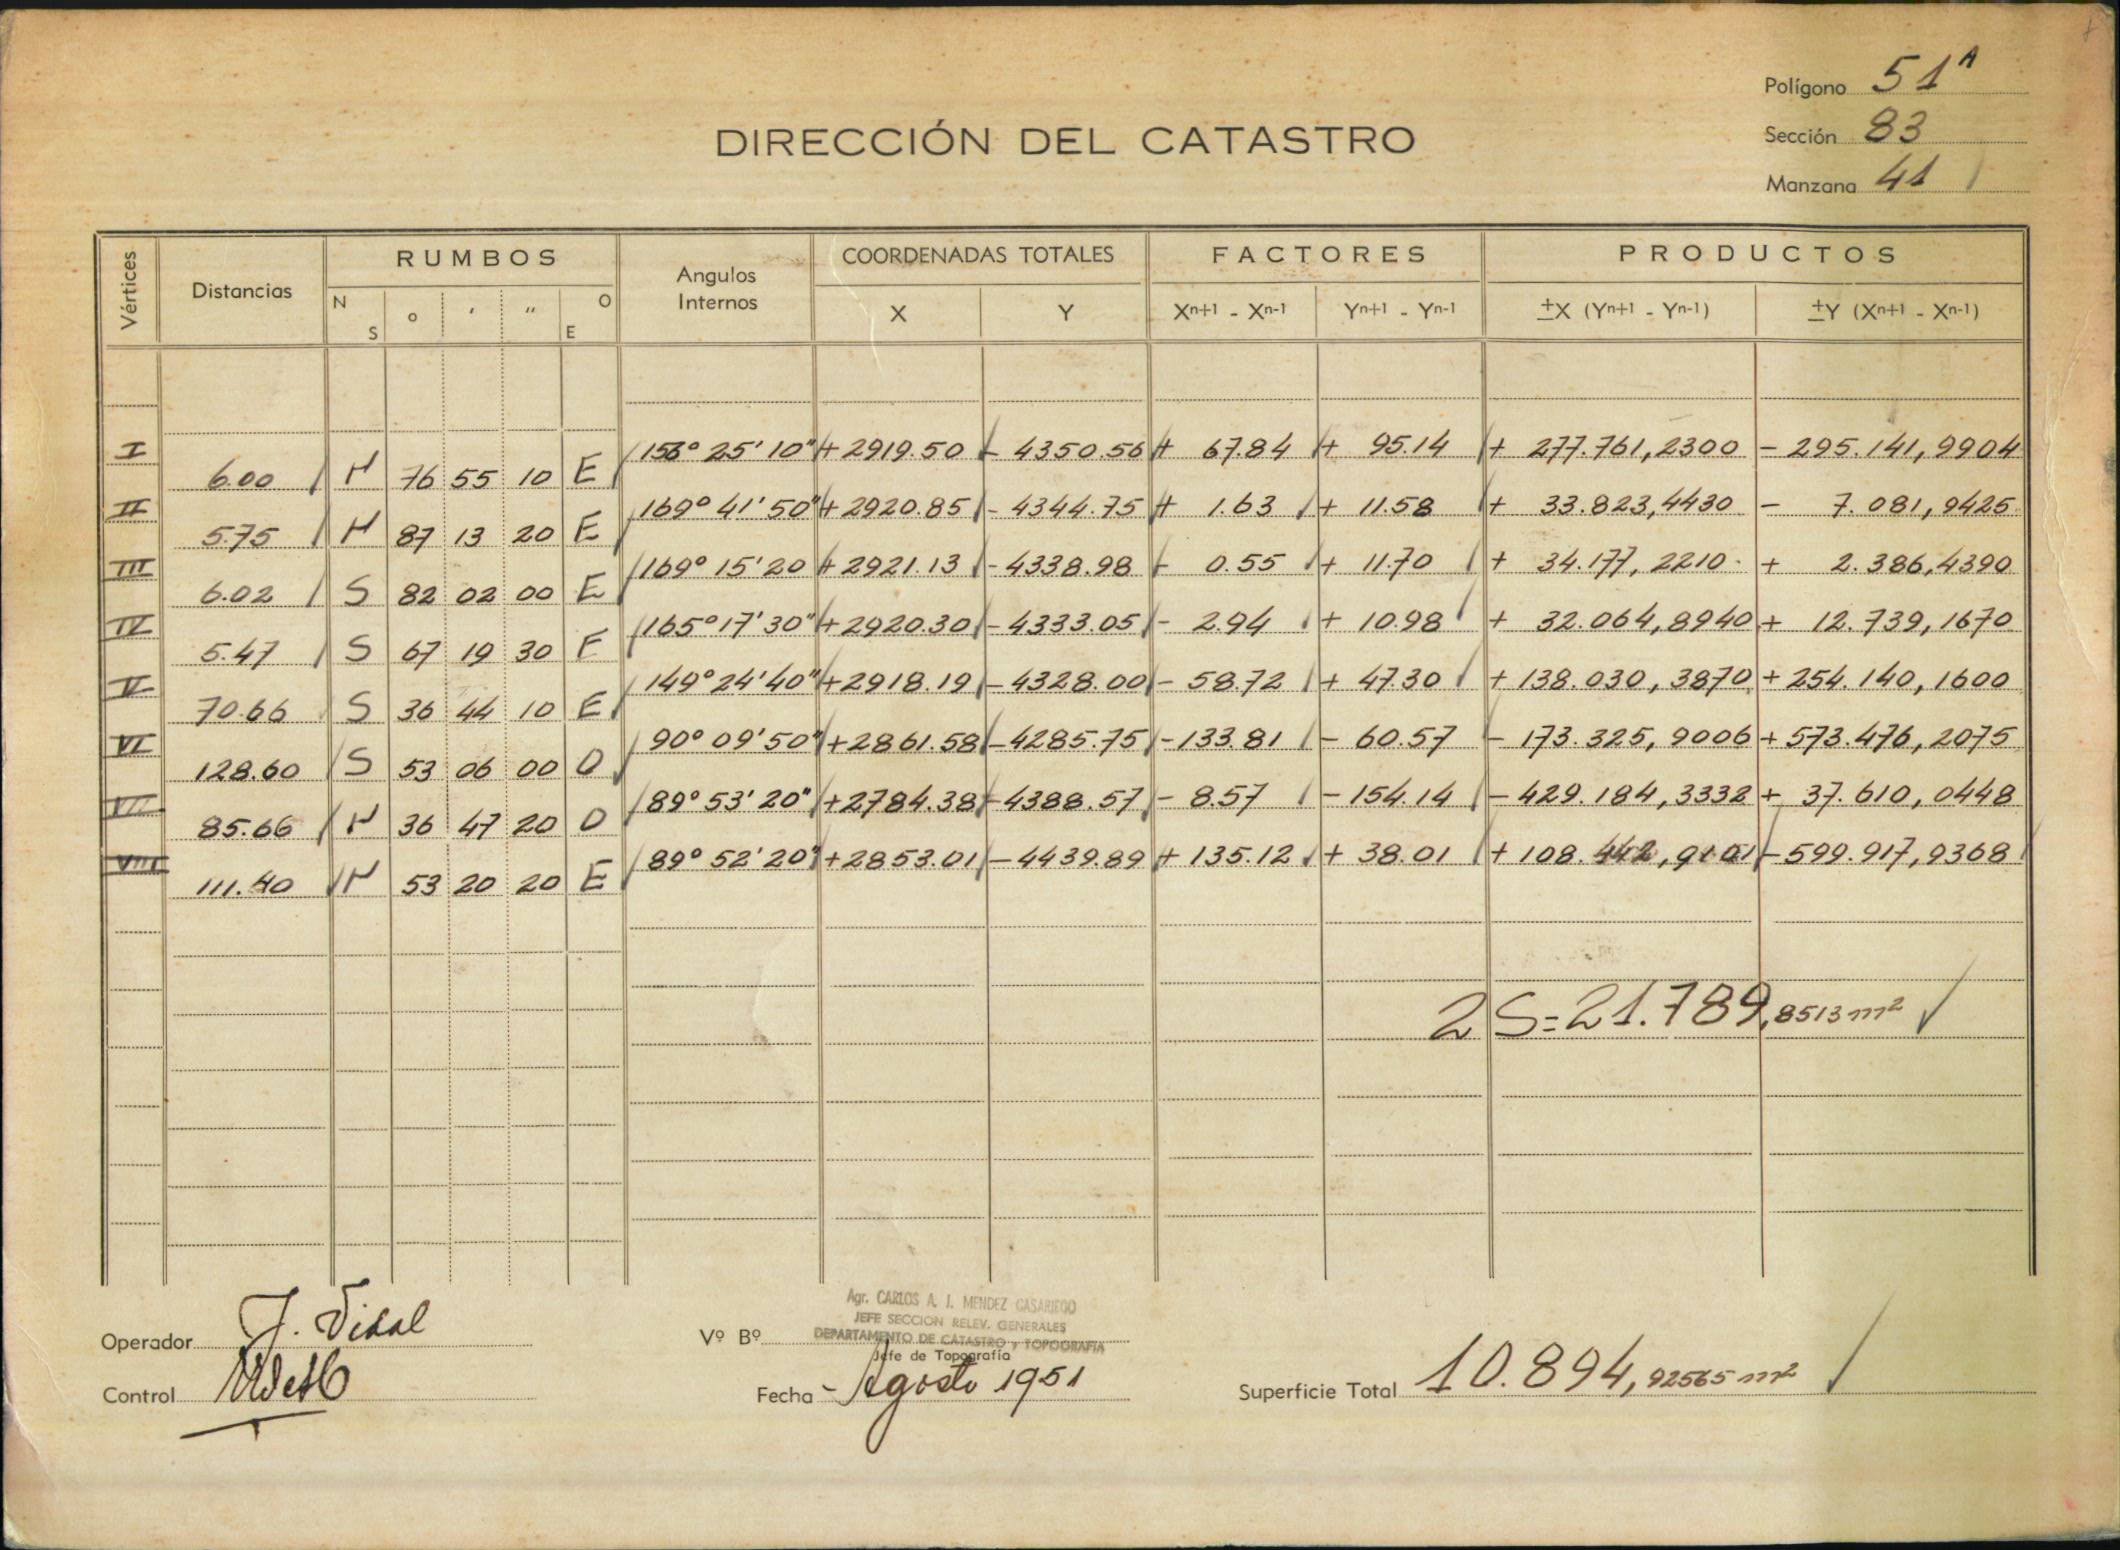 Polígono 51A
DIRECCIÓN DEL CATASTRO
Sección 83
Manzana 41
Vértices Distancias RUMBOS N S o ' " O E Angulos Internos COORDENADAS TOTALES X Y FACTORES Xn+1 - Xn-1 Yn+1 - Yn-1 PRODUCTOS ±X (Yn+1 - Yn-1) ±Y (Xn+1 - Xn-1)
I 156° 25' 10" +2919.50 - 4350.56 + 67.84 + 95.14 + 277.761,2300 - 295.141,9904
6.00 N 76 55 10 E
II 169° 41' 50" +2920.85 - 4344.75 + 1.63 + 11.58 + 33.823,4430 - 7.081,9425
5.75 N 87 13 20 E
III 169° 15' 20 +2921.13 - 4338.98 - 0.55 + 11.70 + 34.177,2210 + 2.386,4390
6.02 S 82 02 00 E
IV 165° 17' 30" +2920.30 - 4333.05 - 2.94 + 10.98 + 32.064,8940 + 12.739,1670
5.47 S 67 19 30 E
V 149° 24' 40" +2918.19 - 4328.00 - 58.72 + 47.30 + 138.030,3870 + 254.140,1600
70.66 S 36 44 10 E
VI 90° 09' 50" +2861.58 - 4285.75 - 133.81 - 60.57 - 173.325,9006 + 573.476,2075
128.60 S 53 06 00 O
VII 89° 53' 20" +2784.38 - 4388.57 - 8.57 - 154.14 - 429.184,3332 + 37.610,0448
85.66 N 36 47 20 O
VIII 89° 52' 20" +2853.01 - 4439.89 + 135.12 + 38.01 + 108.442,9101 - 599.917,9368
111.40 N 53 20 20 E
2 S = 21.789,8513 m²
Agr. CARLOS A. J. MENDEZ CASARIEGO
JEFE SECCION RELEV. GENERALES
DEPARTAMENTO DE CATASTRO y TOPOGRAFIA
Operador J. Vidal Vº Bº
Jefe de Topografía
Control Fecha - Agosto 1951 Superficie Total 10.894,92565 m²